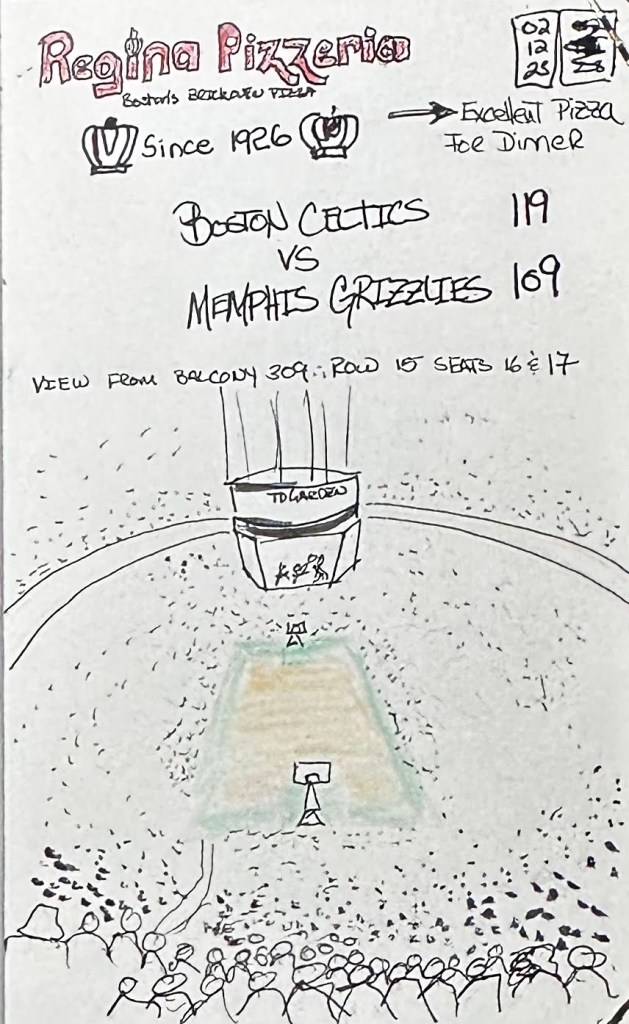 Regina Pizzeria
Boston's BRICK OVEN PIZZA
Since 1926
02
12
25
→ Excellent Pizza
For Dinner
BOSTON CELTICS 119
VS
MEMPHIS GRIZZLIES 109
VIEW FROM BALCONY 309 ∴ ROW 15 SEATS 16 & 17
TD GARDEN